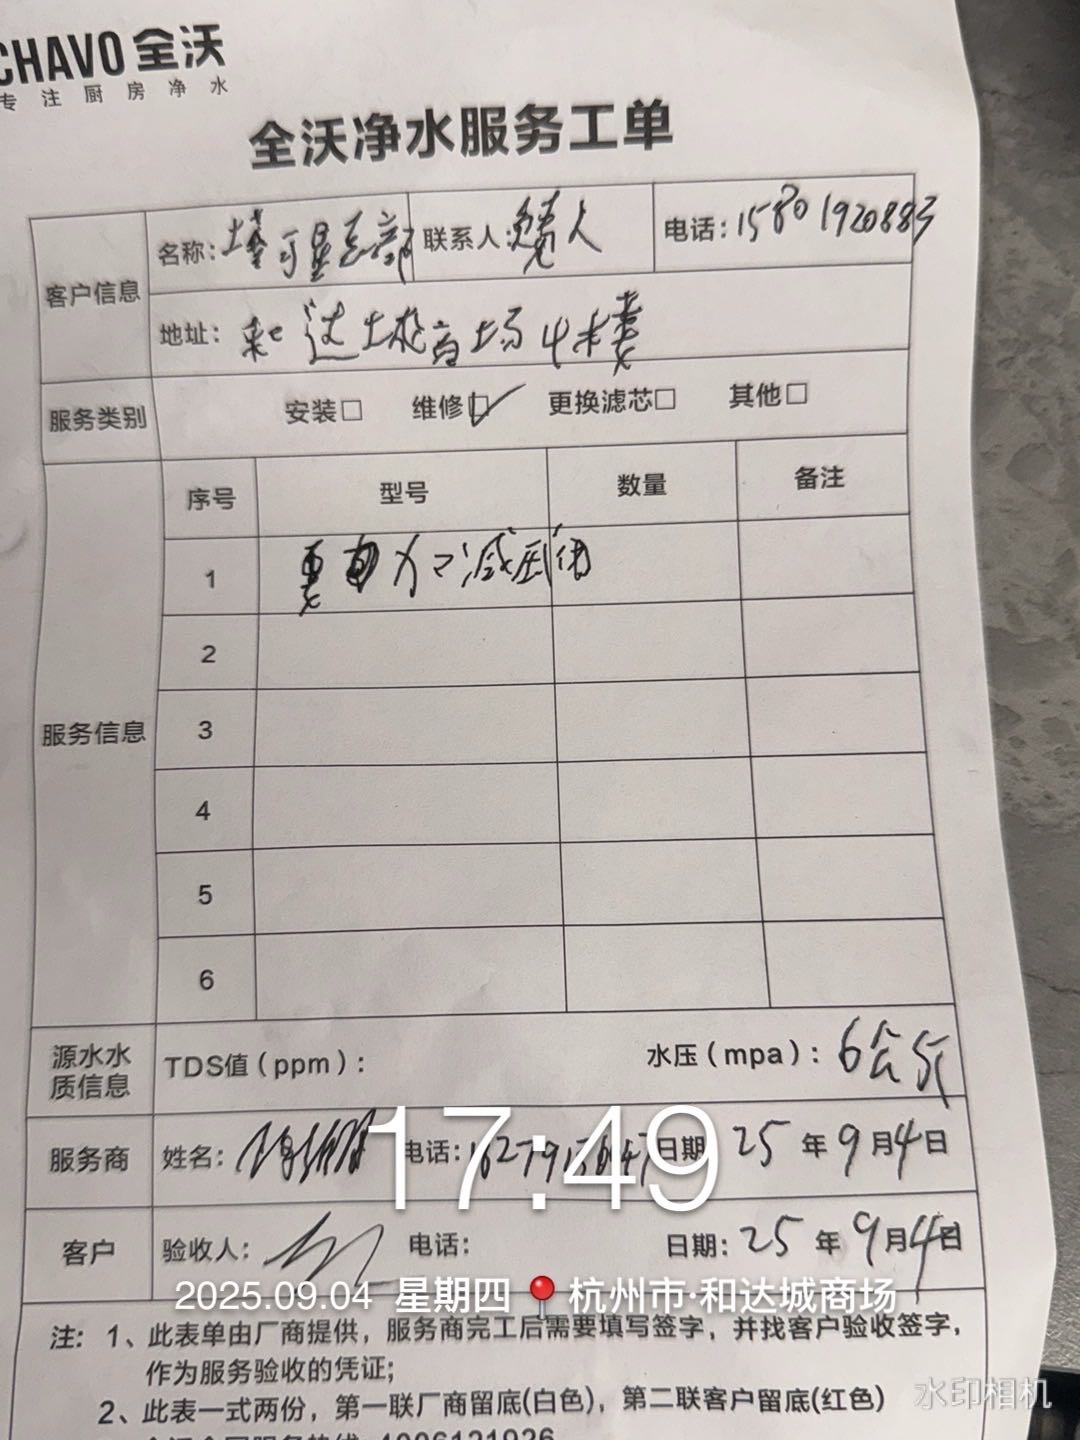 CHAVO 全沃
专注厨房净水
全沃净水服务工单
客户信息
名称: 联系人: 电话: 15801920883
地址: 和达城商场4楼
服务类别 安装□ 维修☑ 更换滤芯□ 其他□
服务信息
序号 型号 数量 备注
1 减压阀
2
3
4
5
6
源水水质信息 TDS值(ppm): 水压(mpa): 6公斤
服务商 姓名: 电话: 日期: 25年9月4日
17:49
客户 验收人: 电话: 日期: 25年9月4日
2025.09.04 星期四 杭州市·和达城商场
注: 1、此表单由厂商提供，服务商完工后需要填写签字，并找客户验收签字，
作为服务验收的凭证;
2、此表一式两份，第一联厂商留底(白色)，第二联客户留底(红色)
水印相机
4006121926